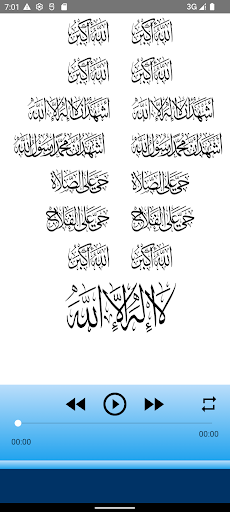 7:01 3G
الله أكبر الله أكبر
الله أكبر الله أكبر
اشهد ان لا اله الا الله اشهد ان لا اله الا الله
اشهد ان محمدا رسول الله اشهد ان محمدا رسول الله
حي على الصلاة حي على الصلاة
حي على الفلاح حي على الفلاح
الله أكبر الله أكبر
لا إله إلا الله
00:00 00:00